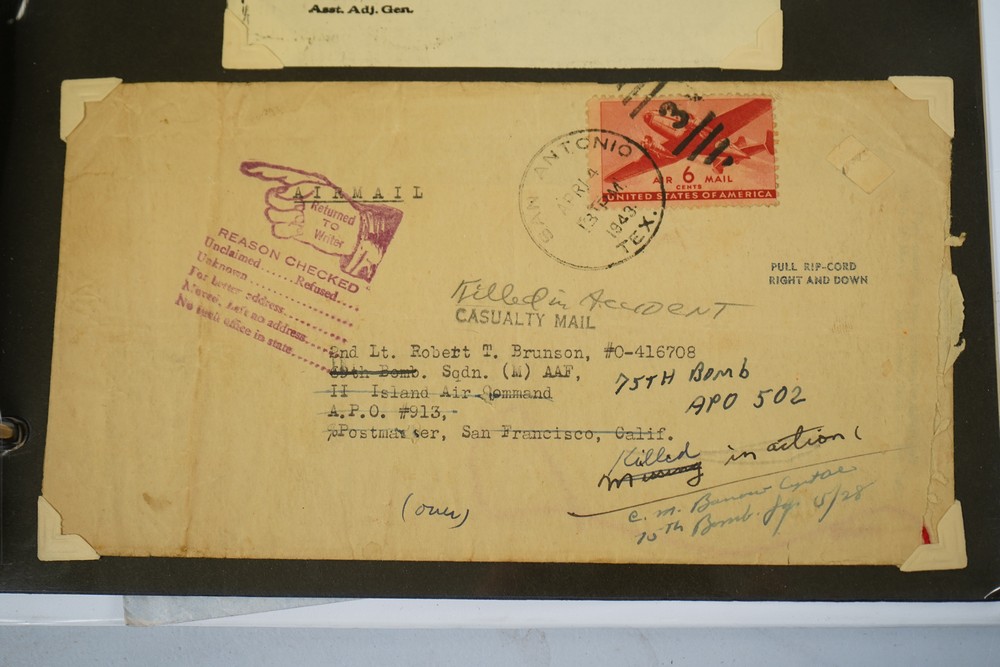 Asst. Adj. Gen.
3
AIR 6 MAIL
CENTS
UNITED STATES OF AMERICA
SAN ANTONIO
APR 14
PM
1943
TEX.
AIRMAIL
Returned
TO
Writer
REASON CHECKED
Unclaimed......Refused....
Unknown
For better address
Moved, Left no address
No such office in state
PULL RIP-CORD
RIGHT AND DOWN
Killed in ACCIDENT
CASUALTY MAIL
2nd Lt. Robert T. Brunson, #0-416708
69th Bomb. Sqdn. (M) AAF,
II Island Air Command
A.P.O. #913,
Postmaster, San Francisco, Calif.
75TH BOMB
APO 502
Killed
Missing in action
(over)
C. M.
75th Bomb. 5/28